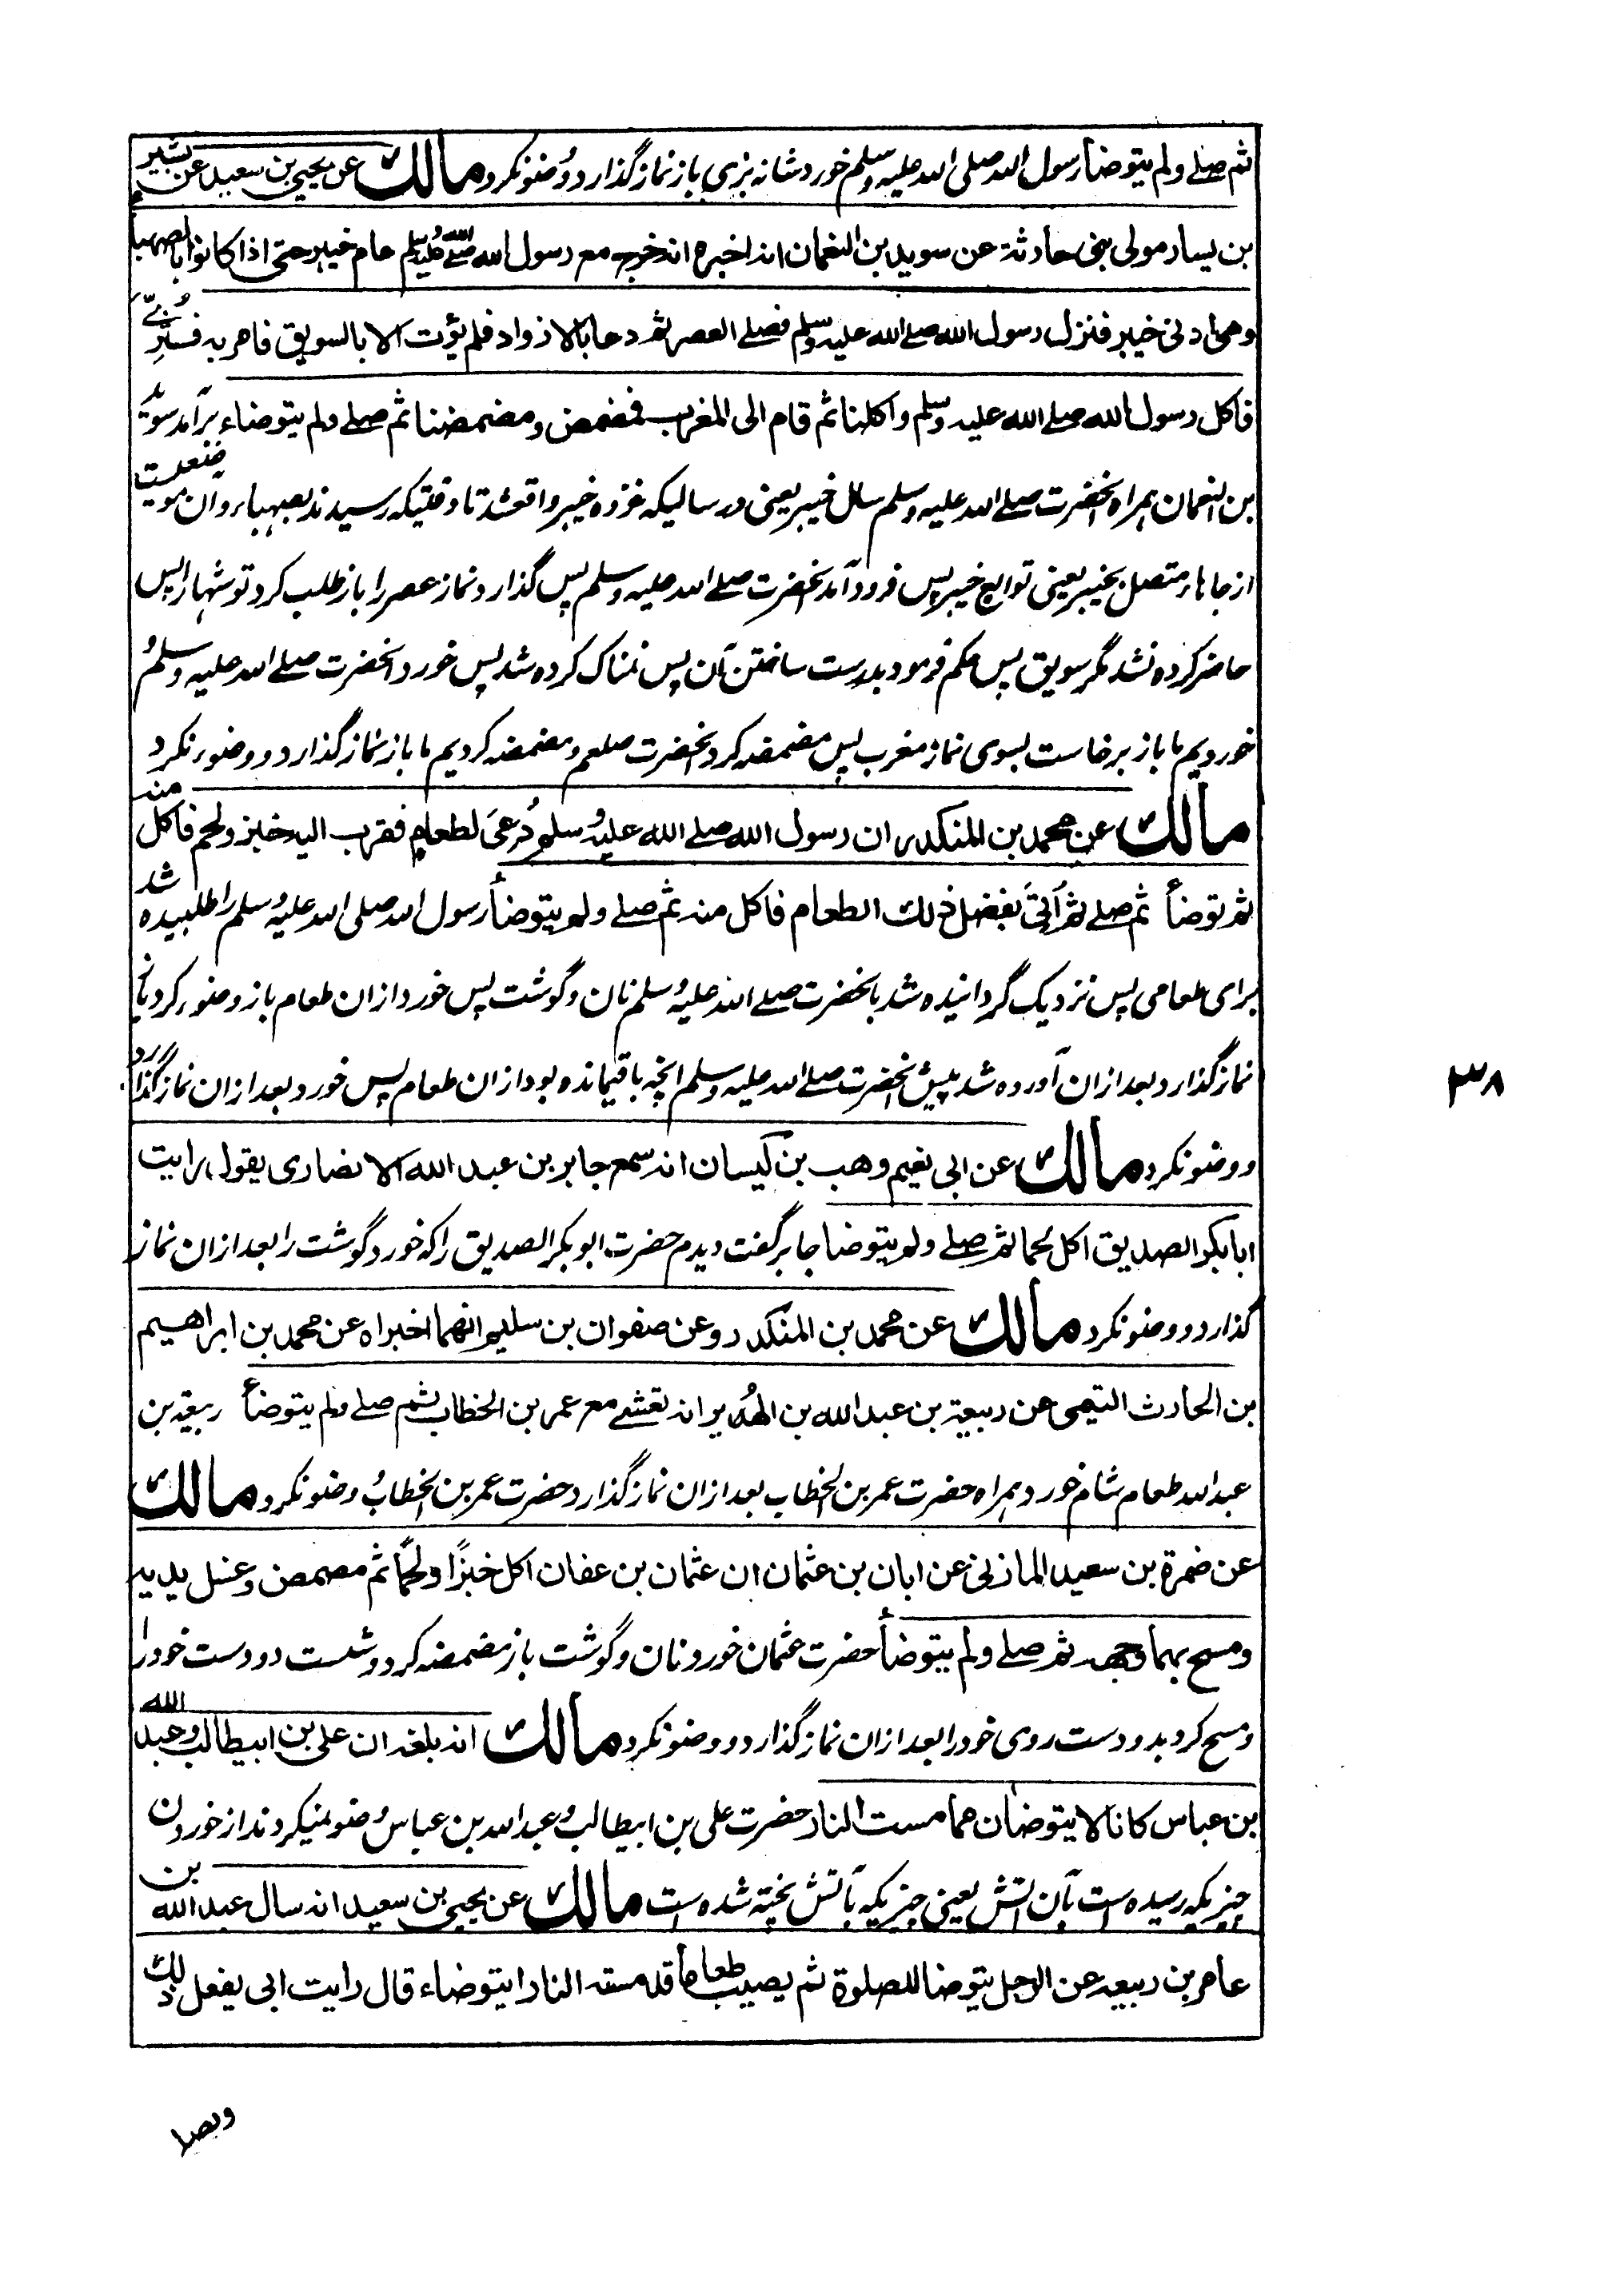 ثم صلے ولم يتوضأ رسول الله صلى الله عليه وسلم خورد شانه بزى باز نماز گذارد و وضو نكرد مالك عن يحيى بن سعيد عن بشير
بن يسار مولى بنى حارثة عن سويد بن النعمان انه اخبره انه خرج مع رسول الله صلے الله عليه وسلم عام خيبر حتى اذا كانوا بالصهباء
وهى ادنى خيبر فنزل رسول الله صلے الله عليه وسلم فصلے العصر ثم دعا بالازواد فلم يؤت الا بالسويق فامر به فثرى
فاكل رسول الله صلے الله عليه وسلم واكلنا ثم قام الى المغرب فمضمض ومضمضنا ثم صلے ولم يتوضاء برآمد سويد
بن النعمان همراه آنحضرت صلے الله عليه وسلم سال خيبر يعنى در ساليكه غزوه خيبر واقع شد تا وقتيكه رسيدند بصهباء وآن موضعيست
از جاهاء متصل بخيبر يعنى توابع خيبر پس فرود آمد آنحضرت صلے الله عليه وسلم پس گذارد نماز عصر را باز طلب كرد توشها را پس
حاضر كرده نشد مگر سويق پس حكم فرمود بدرست ساختن آن پس نمناك كرده شد پس خورد آنحضرت صلے الله عليه وسلم و
خورديم ما باز برخاست بسوى نماز مغرب پس مضمضه كرد آنحضرت صلعم ومضمضه كرديم ما باز نماز گذارد و وضوء نكرد
مالك عن محمد بن المنكدر ان رسول الله صلے الله عليه وسلم دُعىَ لطعام فقرب اليه خبز ولحم فاكل منه
ثم توضأ ثم صلے ثم اُتىَ بفضل ذلك الطعام فاكل منه ثم صلے ولم يتوضأ رسول الله صلى الله عليه وسلم را طلبيده شد
براى طعامى پس نزديك گردانيده شد بآنحضرت صلے الله عليه وسلم نان وگوشت پس خورد ازان طعام باز وضوء كرد باز
نماز گذارد بعد ازان آورده شد پيش آنحضرت صلے الله عليه وسلم آنچه باقيمانده بود ازان طعام پس خورد بعد ازان نماز گذارد
و وضو نكرد مالك عن ابى نعيم وهب بن كيسان انه سمع جابر بن عبد الله الانصارى يقول رايت
ابابكر الصديق اكل لحما ثم صلے ولم يتوضا جابر گفت ديدم حضرت ابو بكر الصديق را كه خورد گوشت را بعد ازان نماز
گذارد و وضو نكرد مالك عن محمد بن المنكدر وعن صفوان بن سليم انهما اخبراه عن محمد بن ابراهيم
بن الحارث التيمى عن ربيعة بن عبد الله بن الهُدير انه تعشے مع عمر بن الخطاب ثم صلے ولم يتوضأ ربيعة بن
عبد الله طعام شام خورد همراه حضرت عمر بن الخطاب بعد ازان نماز گذارد حضرت عمر بن الخطاب وضو نكرد مالك
عن ضمرة بن سعيد المازنى عن ابان بن عثمان ان عثمان بن عفان اكل خبزًا ولحمًا ثم مصمص وغسل يديه
ومسح بهما وجهه ثم صلے ولم يتوضأ حضرت عثمان خورد نان وگوشت باز مضمضه كرد وشست دو دست خود را
ومسح كرد بدو دست روى خود را بعد ازان نماز گذارد و وضو نكرد مالك انه بلغه ان على بن ابيطالب وعبد الله
بن عباس كانا لا يتوضان مما مست النار حضرت على بن ابيطالب وعبد الله بن عباس وضو نميكردند از خوردن
چيزيكه رسيده است بآن آتش يعنى چيزيكه بآتش پخته شده است مالك عن يحيى بن سعيد انه سال عبد الله بن
عامر بن ربيعه عن الرجل يتوضا للصلوة ثم يصيب طعاما قد مسته النار ايتوضاء قال رايت ابى يفعل ذلك
٣٨